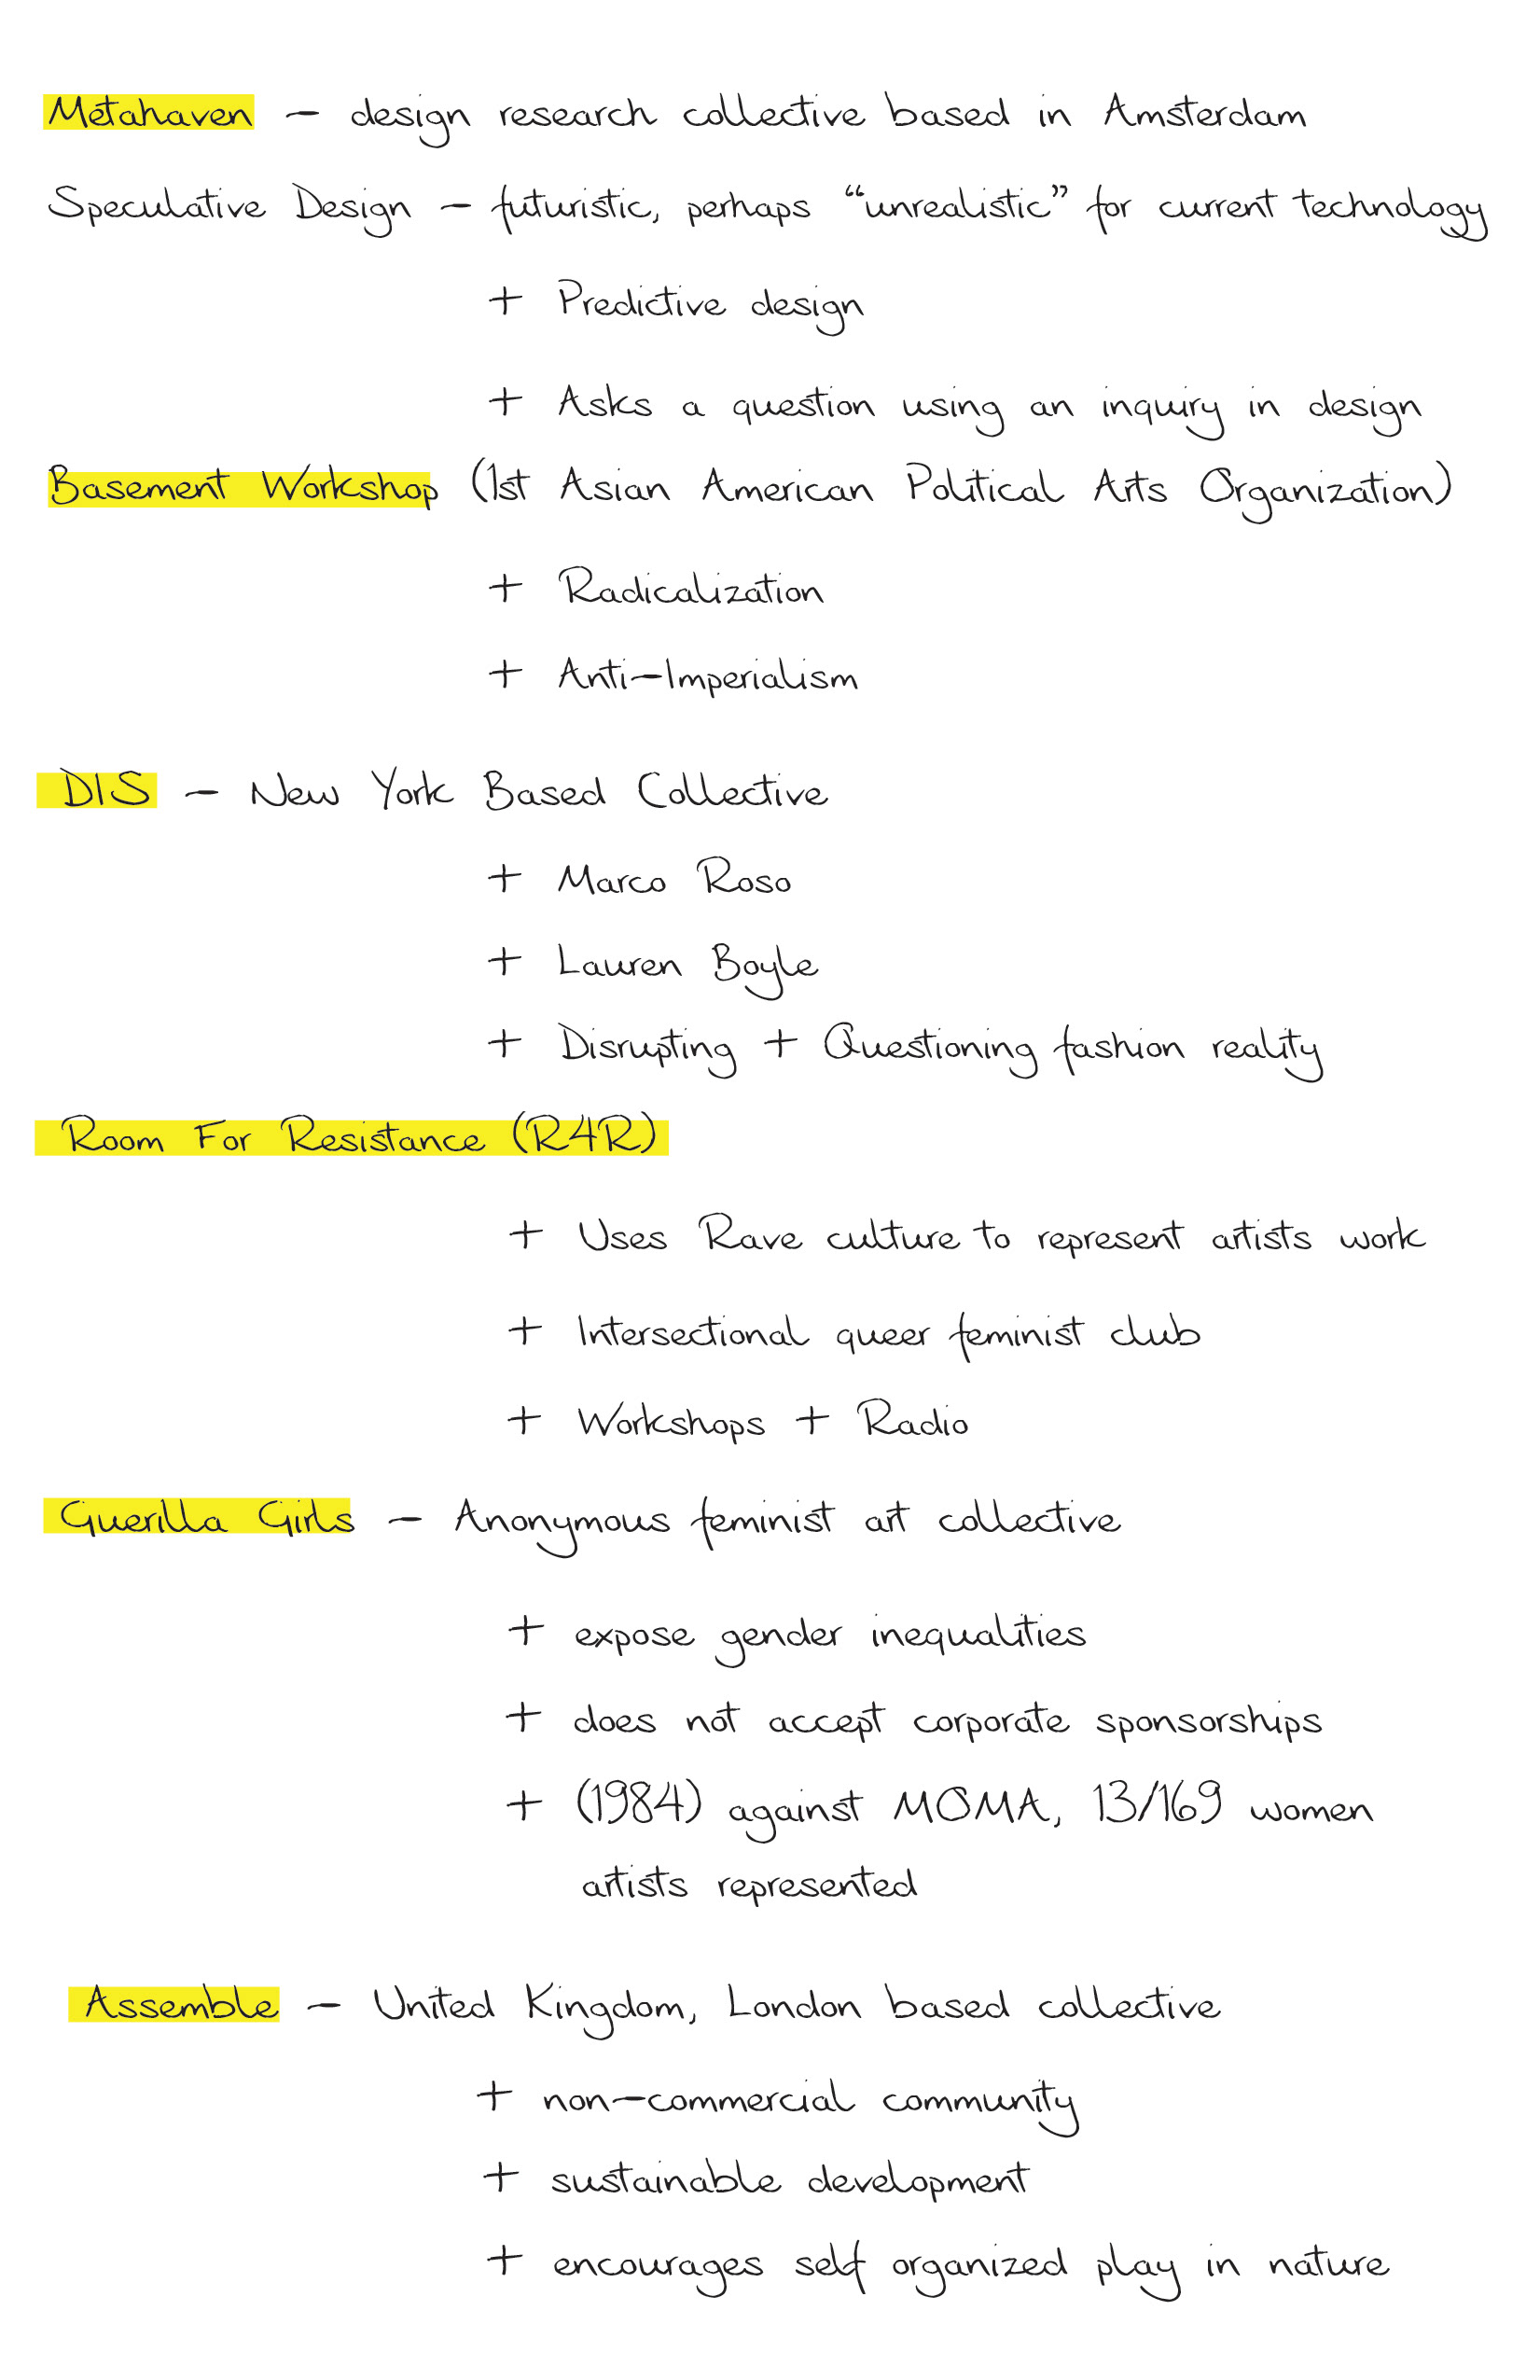 Metahaven – design research collective based in Amsterdam
Speculative Design – futuristic, perhaps “unrealistic” for current technology
+ Predictive design
+ Asks a question using an inquiry in design
Basement Workshop (1st Asian American Political Arts Organization)
+ Radicalization
+ Anti–Imperialism
DIS – New York Based Collective
+ Marco Roso
+ Lauren Boyle
+ Disrupting + Questioning fashion reality
Room For Resistance (R4R)
+ Uses Rave culture to represent artists work
+ Intersectional queer feminist club
+ Workshops + Radio
Guerilla Girls – Anonymous feminist art collective
+ expose gender inequalities
+ does not accept corporate sponsorships
+ (1984) against MOMA, 13/169 women
artists represented
Assemble – United Kingdom, London based collective
+ non–commercial community
+ sustainable development
+ encourages self organized play in nature